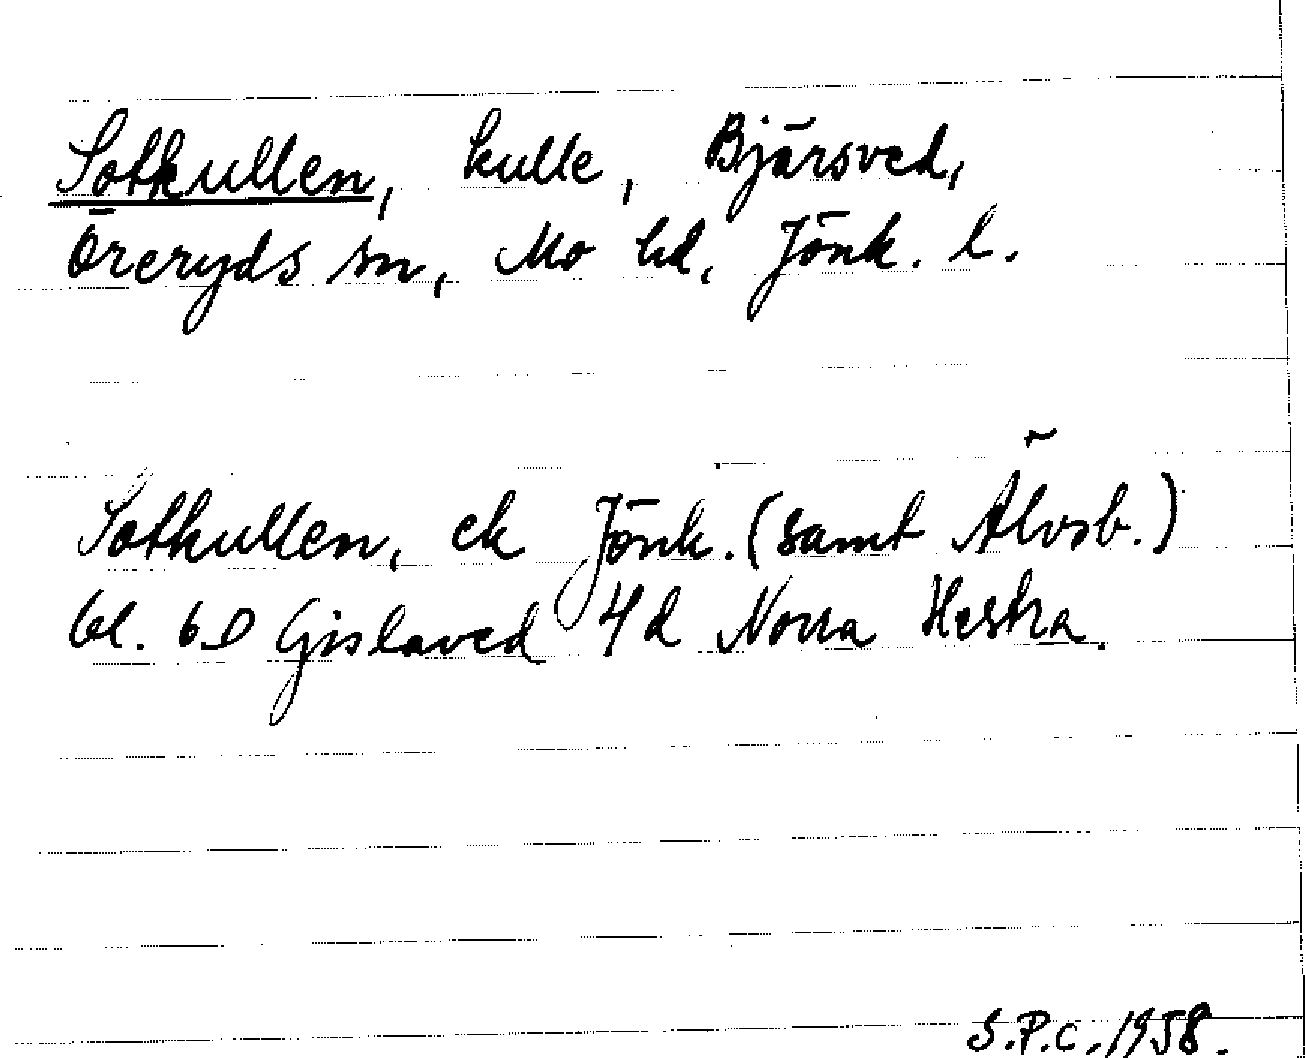 Sotkullen, kulle, Bjärsved,
Öreryds sn, Mo hd, Jönk. l.
Sotkullen, ek Jönk. (samt Älvsb.)
bl. 6D Gislaved 4d Norra Hestra.
S.P.C. 1958.